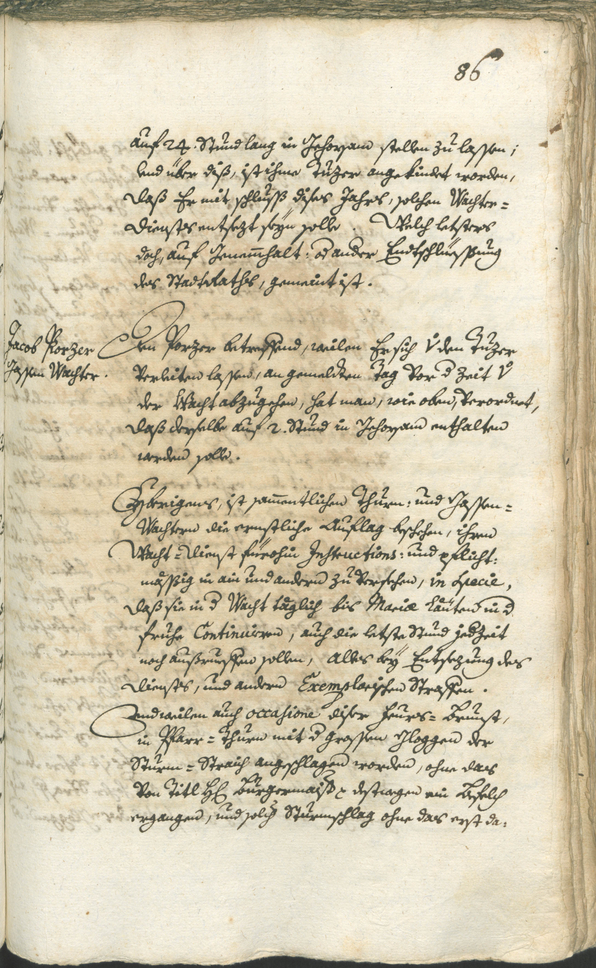 86
auf 24. Stund lang in Gehorsam stellen zu lassen;
und über diß, ist ihme Tuzer angekündet worden,
daß Er mit schluss dises Jahrs, solchen Wachter=
Diensts entsezt seyn solle. Welch letsters
doch, auf Innenhalt: od ander Endtschliessung
des StadtRaths, gemeint ist.
Jacob Porzer
Gassen Wachter.
Den Porzer betreffend, weilen Er sich v dem Tuzer
verleiten lassen, an gemeldten Tag vor d Zeit v
der Wacht abzugehen, hat man, wie oben, verordnet,
daß derselbe auf 2. Stund in Gehorsam enthalten
werden solle.
Yberigens, ist sammentlichen Thurn: und Gassen=
Wachtern die ernstliche Auflag beschehen, ihren
Wacht=Dienst fürohin Instructions: und pflicht:
mässig in ain und andern zu versehen, in specie,
daß sie in d Wacht täglich bis Mariæ Läuten in d
frühe Continuiren, auch die letste Stund jedzeit
noch außrueffen sollen, Alles bey Entsezung des
Diensts, und andern Exemplarischen Straffen.
Und weilen auch occasione diser Feurs=Brunst,
in Pfarr=Thurn mit d grossen Gloggen der
Sturm=Straich angeschlagen worden, ohne das
von Titl H Burgermaistr destwegen ein Befelch
ergangen, und solch Sturmschlag ohne das erst da=